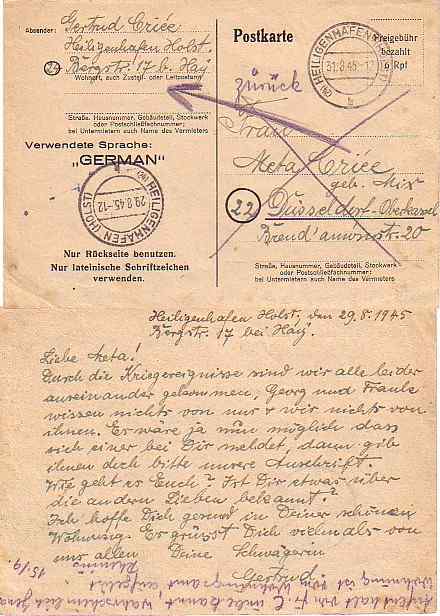 Absender: Gertrud Criée
Heiligenhafen Holst.
24 Bergstr. 17 b. Haÿ
Wohnort, auch Zustell- oder Leitpostamt
Straße, Hausnummer, Gebäudeteil, Stockwerk
oder Postschließfachnummer;
bei Untermietern auch Name des Vermieters
Verwendete Sprache:
„GERMAN"
(24) HEILIGENHAFEN (HOLST)
29.8.45.-12
Nur Rückseite benutzen.
Nur lateinische Schriftzeichen
verwenden.
Postkarte
Freigebühr
bezahlt
6 Rpf
(24) HEILIGENHAFEN (HOLST)
31.8.45.-12
b
zurück
Frau
Meta Criée
geb.
22 Düsseldorf-Oberkassel
20
Straße, Hausnummer, Gebäudeteil, Stockwerk
oder Postschließfachnummer;
bei Untermietern auch Name des Vermieters
Heiligenhafen Holst. den 29.8.1945
Bergstr. 17 bei Haÿ.
Liebe Meta!
Durch die Kriegereignisse sind wir alle leider
auseinander gekommen, Georg und Frauke
wissen nichts von uns & wir nichts von
ihnen. Es wäre ja nun möglich dass
sich einer bei Dir meldet, dann gib
ihnen doch bitte unsere Anschrift.
Wie geht es Euch? Ist Dir etwas über
die andern Lieben bekannt?
Ich hoffe Dich gesund in Deiner schönen
Wohnung. Es grüsst Dich vielmals von
uns allen Deine Schwägerin
Gertrud
Aufenthalt von F. C. unbekannt, wahrscheinlich
Wohnung ist von Wohnungsamt aufgelöst
15/9.